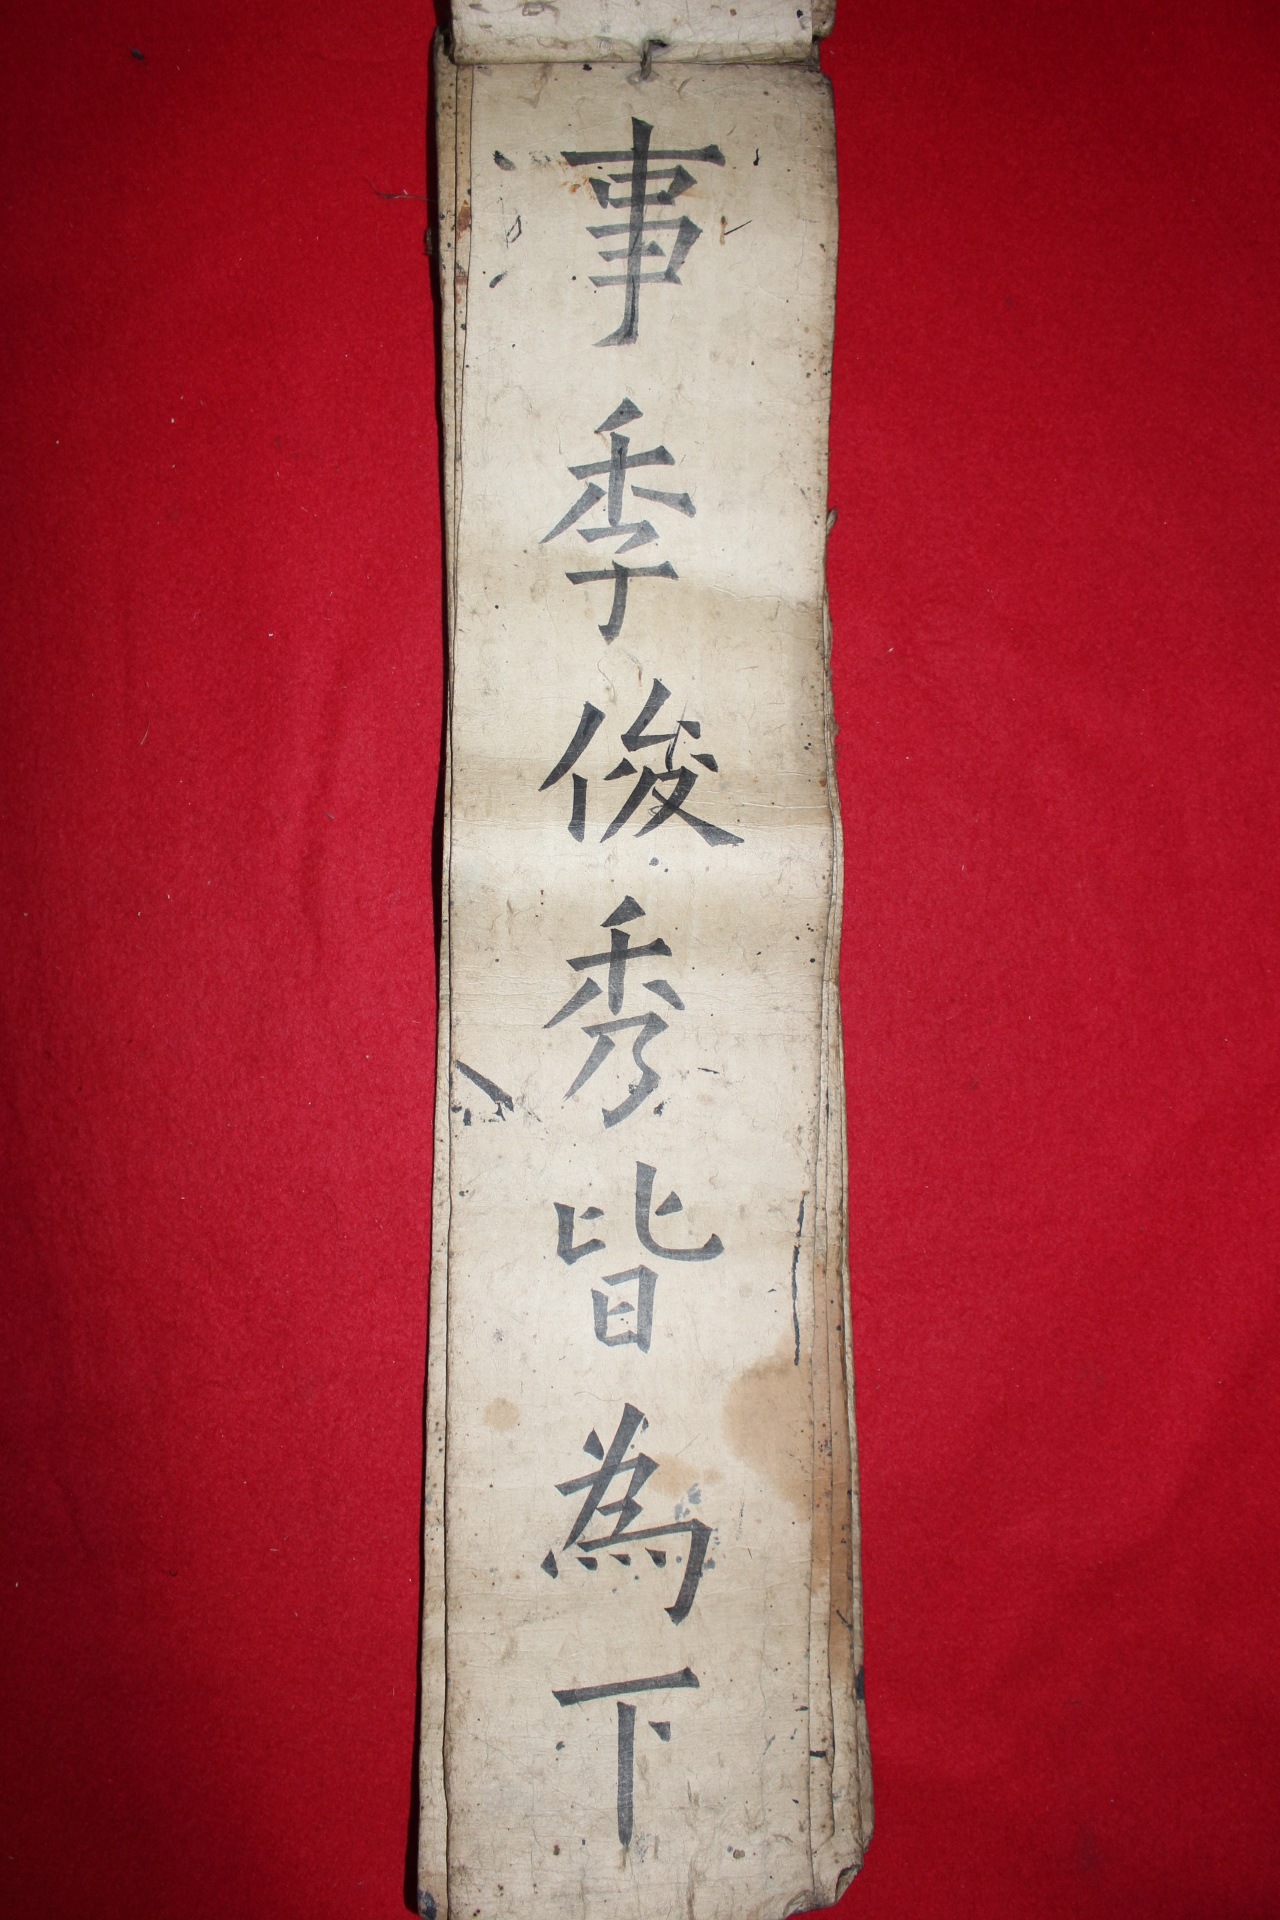 事季俊秀皆為下